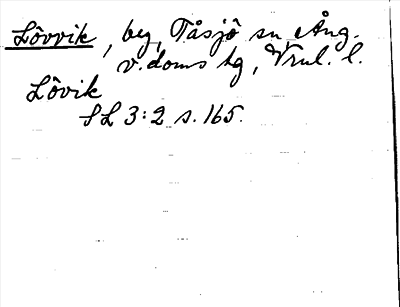 Lövvik, beg, Tåsjö sn Ång.
v. doms hg, Vrnl. l.
Lövik
SL 3:2 s. 165.